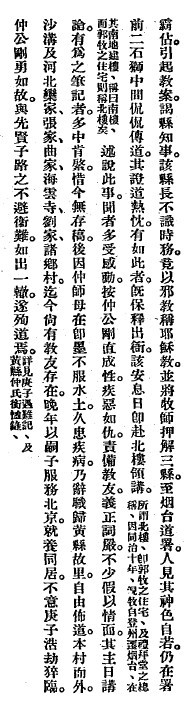 霸佔引起教案。縣知事該縣長不識時務。竟以邪教稱耶穌教。並將牧師押解三縣。至烟台道署人見其神色自若。仍在署
前二石獅中間侃侃傳道。其證道熱忱有如此者。既保釋出衙。該安息日即赴北樓領講。所謂北樓、即郭牧之住宅、及禮拜堂之樓稱、因同治十年、倪牧自登州讓烟台、在
其南地建樓、稱曰南樓、而郭牧之住宅、則稱北樓矣 述說此事。聞者多受感動。按仲公剛直成性。疾惡如仇。責備教友。義正詞嚴。不少假以情面。其主日講
論。有為之筆記者。多中肯綮。惜今無存稿。後因仲師母在卽墨不服水土。久患疾病。乃辭職歸黃縣故里。自由佈道。本村而外。
沙溝及河北欒家。張家。曲家。海雲寺。劉家。諸鄉村。迄今尚有教友存在。晚年以嗣子服務北京。就養同居。不意庚子浩劫猝臨。
仲公剛勇如故。與先賢子路之不避衛難。如出一轍。遂殉道焉。詳見庚子遇難記、及黃縣仲氏衛道錄、